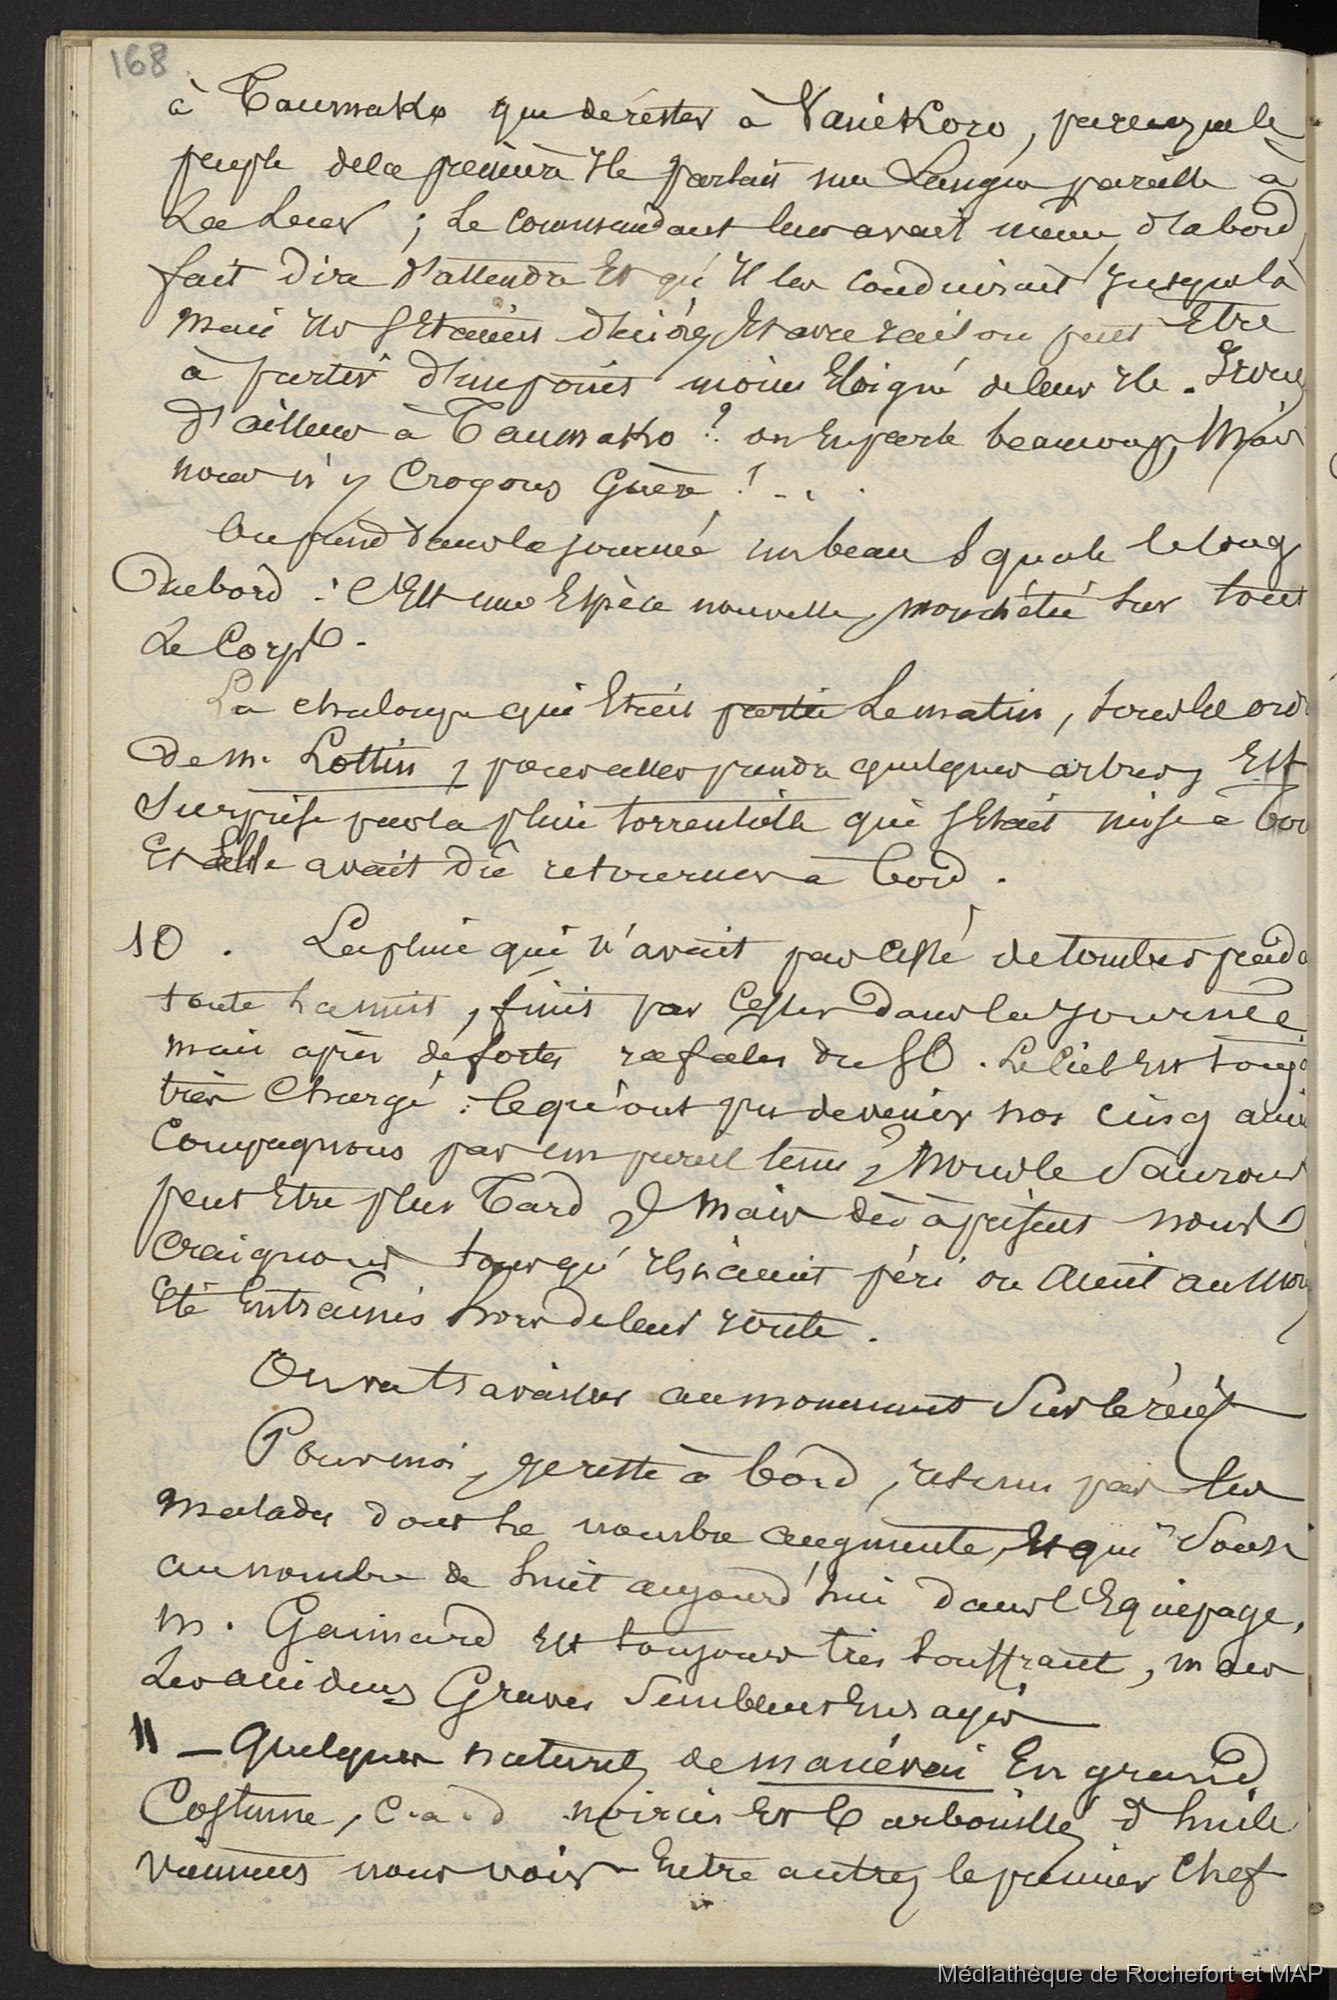 168
à Taumako que de rester à Vanikoro, parce que le
peuple de la première Ile parlait une Langue pareille à
La Leur ; Le Commandant leur avait même d'abord
fait dire d'attendre Et qu'Il les Conduirait Jusque là
Mais Ils s'Etaient Et avec raison peut Etre
à partir d'un point moins Eloigné de leur Ile. Irons
d'ailleurs à Taumako ? on En parle beaucoup, Mais
nous n'y Croyons Guère ! - . .
On prend dans la Journée un beau Squale le long
Du bord : C'Est une Espèce nouvelle, mouchêtée sur tout
Le Corps.
La chaloupe qui Etait partie Le matin, sous les ord
De m. Lottin, pour aller prendre quelques arbres, Est
Surprise par la pluie torrentielle qui s'Etait mise à
Et Elle avait dû retourner à bord.
10 . La pluie qui n'avait pas Cessé de tomber penda
toute La nuit, finit par Cesser Dans la Journée
mais après de fortes rafales du SO. Le Ciel Est touj
très Chargé : Ce qu'ont pu devenir nos Cinq anc
Compagnons par un pareil tems ? Nous le Saurons
peut Etre plus Tard ; Mais dès à présent nous
Craignons tous qu'Ils n'aient péri ou Aient au moi
Eté Entraînés hors de leur route.
On va travailler au monument Sur le récif
Pour moi, Je reste à bord, retenu par les
Malades dont Le nombre augmente, Et qui Sont
au nombre de huit aujourd'hui Dans l'Equipage.
M. Gaimard Est toujours très Souffrant, mais
Les accidens Graves Semblent Enrayés
11 - Quelques naturels de manévai En grand
Costume, C. a. d noircis Et Barbouillés d'huile
viennent nous voir Entre autres le premier Chef
Médiathèque de Rochefort et MAP